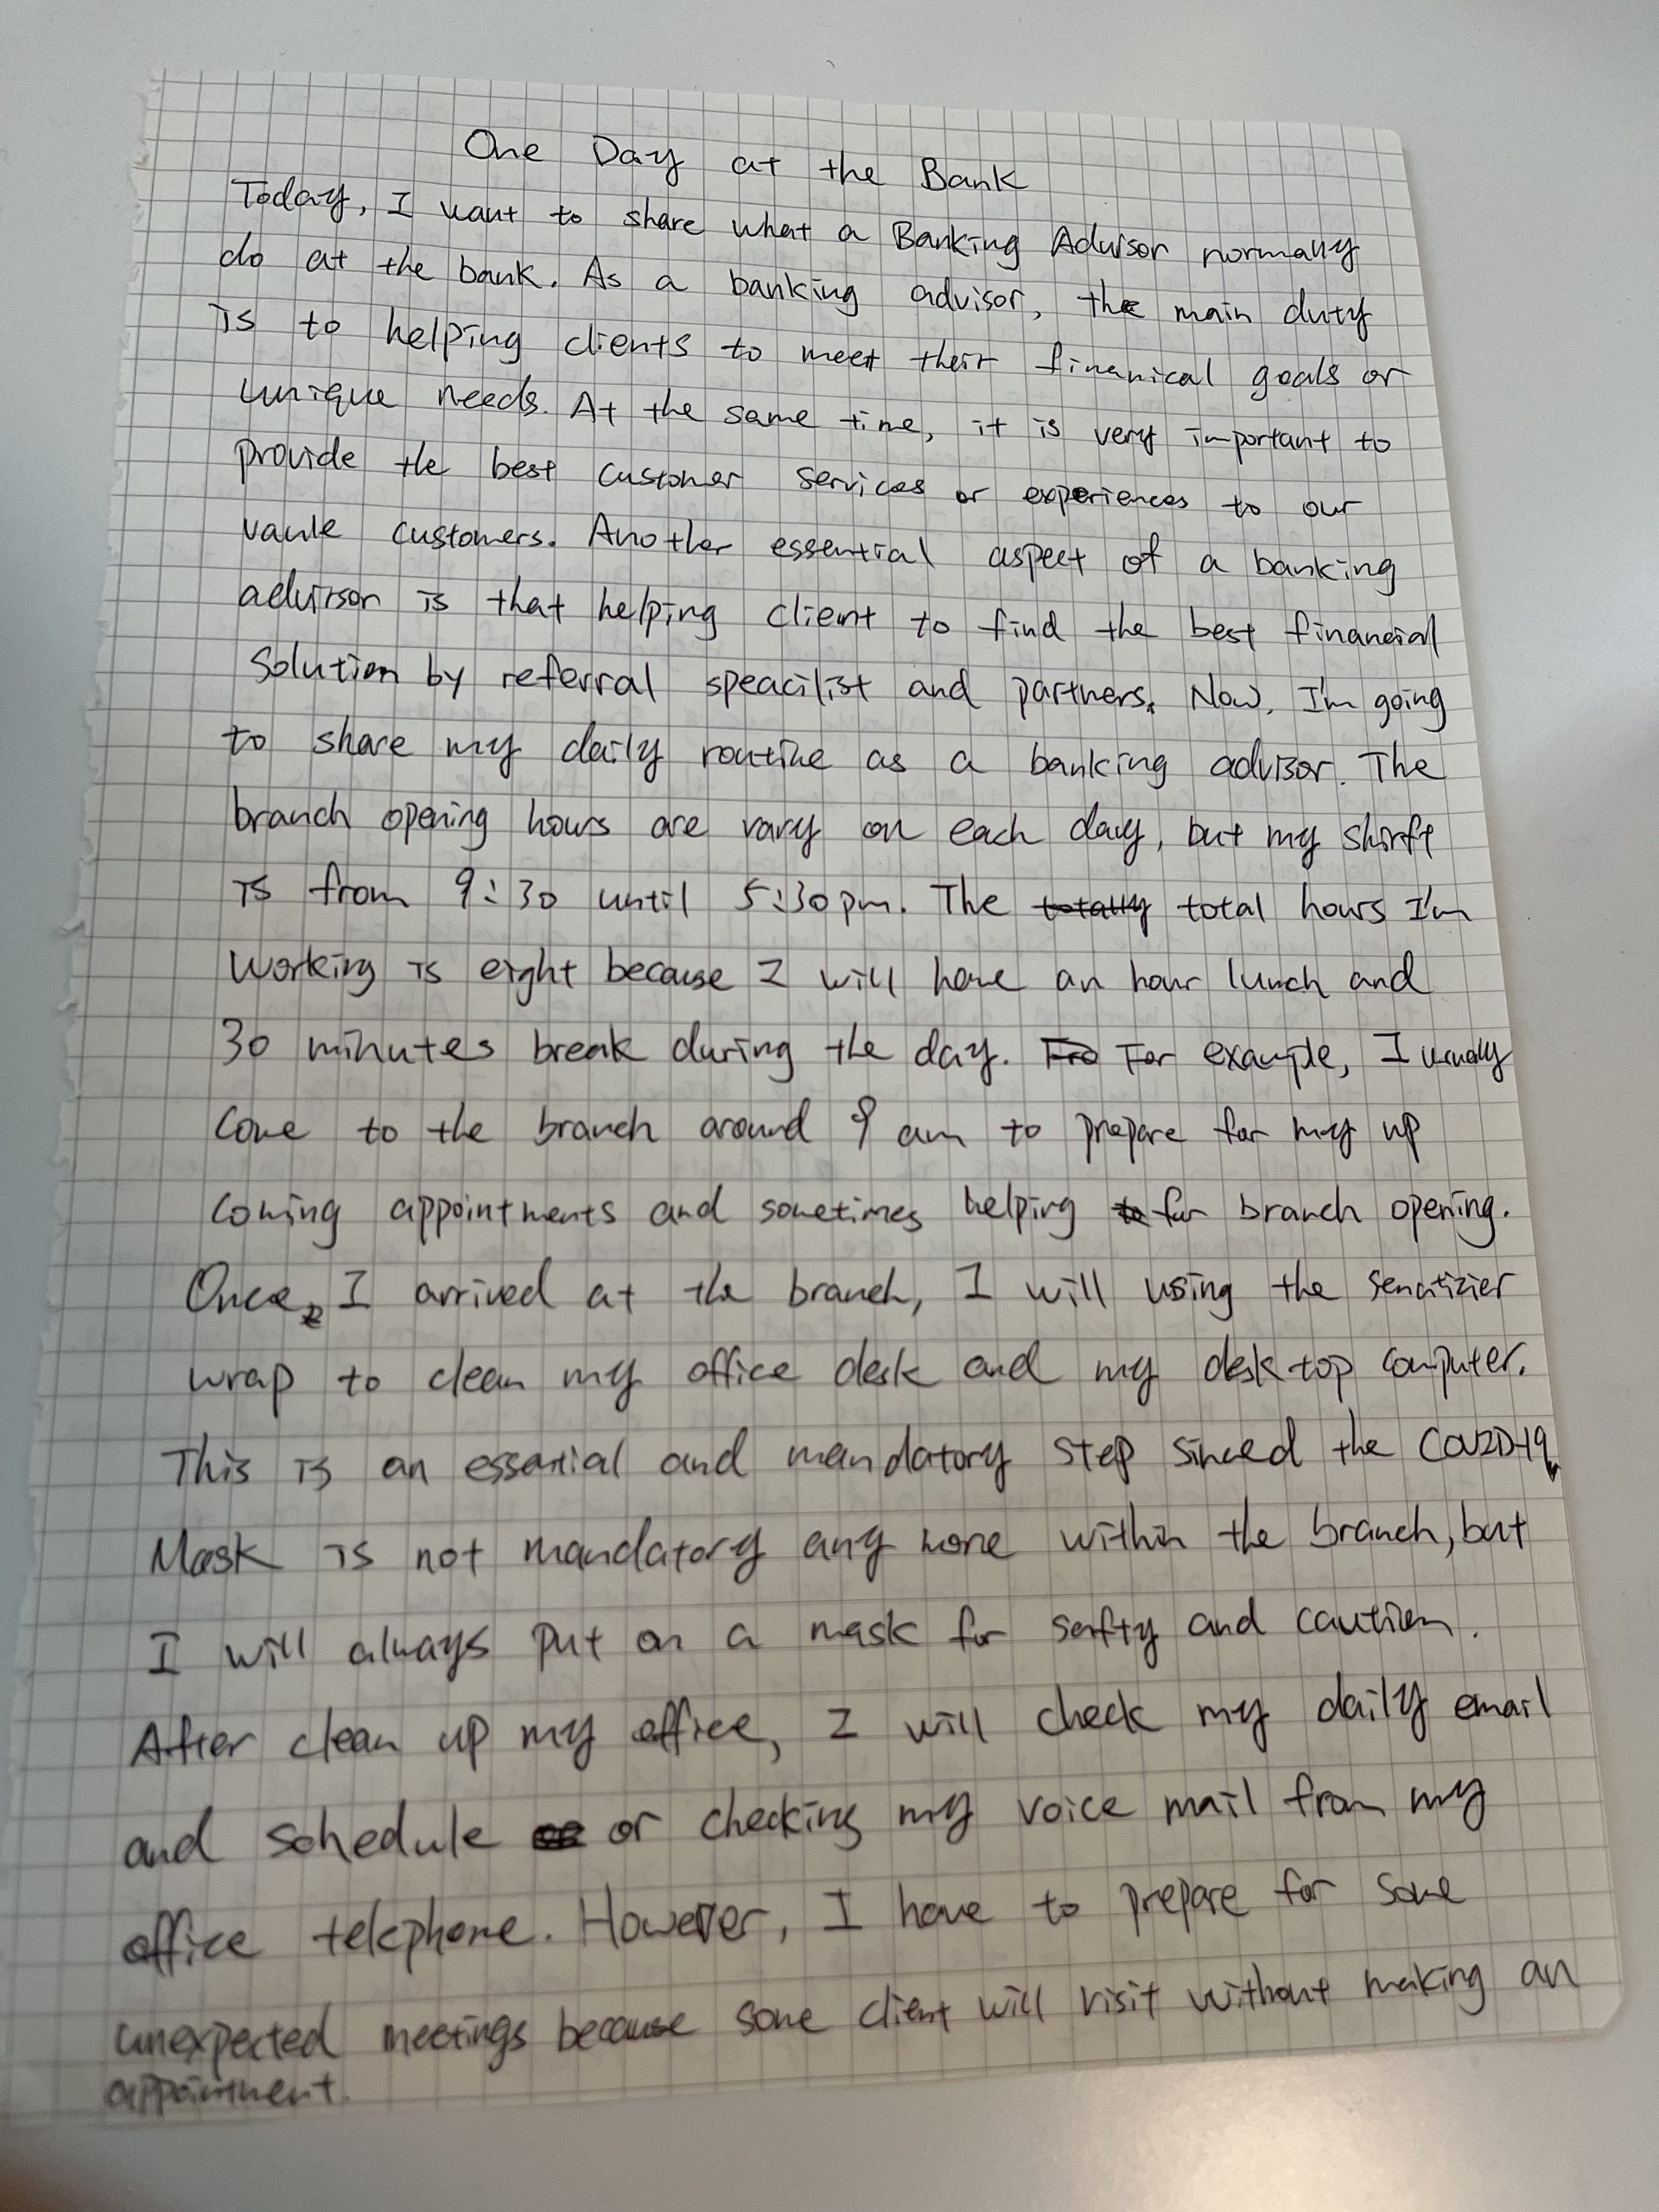 One Day at the Bank
Today, I want to share what a Banking Advisor normally
do at the bank. As a banking advisor, the main duty
is to helping clients to meet their finanical goals or
unique needs. At the same time, it is very important to
provide the best customer services or experiences to our
vaule customers. Another essential aspect of a banking
advirsor is that helping client to find the best financial
solution by referral speacilist and partners. Now, I'm going
to share my daily routine as a banking advisor. The
branch opening hours are vary on each day, but my shirft
is from 9:30 until 5:30pm. The totally total hours I'm
working is eight because I will have an hour lunch and
30 minutes break during the day. Fro For example, I usually
come to the branch around 9 am to prepare for my up
coming appointments and sometimes helping to for branch opening.
Once, I arrived at the branch, I will using the senitizier
wrap to clean my office desk and my desktop computer.
This is an essential and mandatory step sinced the COVID-19.
Mask is not mandatory any more within the branch, but
I will always put on a mask for safty and caution.
After clean up my office, I will check my daily email
and schedule or checking my voice mail from my
office telephone. However, I have to prepare for some
unexpected meetings because some client will visit without making an
appointment.